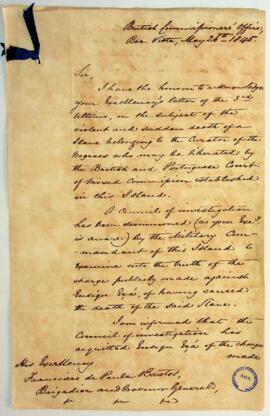 British Commissioners' Office,
Boa Vista, May 26th 1845.
Sir,
I have the honor to acknowledge
your Excellency's letter of the 3rd
Ultimo, on the subject of the
violent and sudden death of a
Slave belonging to the Curator of the
Negroes who may be liberated by
the British and Portuguese Court
of Mixed Commission established
in this Island.
A Council of investigation
has been summoned (as your Excy.
is aware) by the Military Com-
mandant of this Island to
examine into the truth of the
charge publicly made against
Ensign of having caused
the death of the said Slave.
I am informed that the
Council of investigation has
acquitted Ensign of the charge
made
His Excellency
Francisco de Paula Bastos,
Brigadier and Governor General,